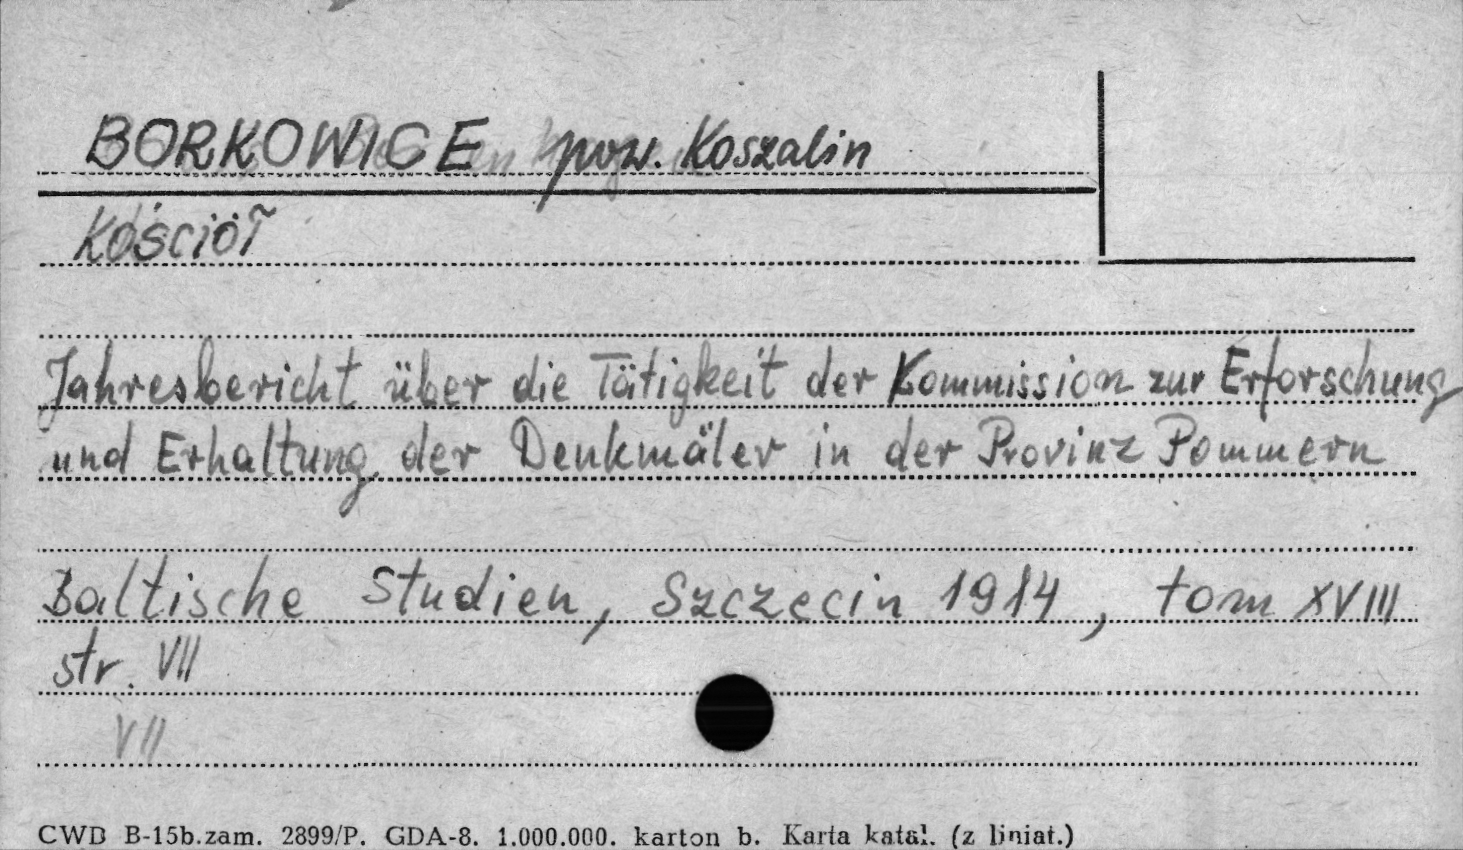 BORKOWICE pow. Koszalin
Kościół
Jahresbericht über die Tätigkeit der Kommission zur Erforschung
und Erhaltung der Denkmäler in der Provinz Pommern
Baltische Studien, Szczecin 1914, tom XVIII
str. VII
VII
CWD B-15b.zam. 2899/P. GDA-8. 1.000.000. karton b. Karta katal. (z liniat.)